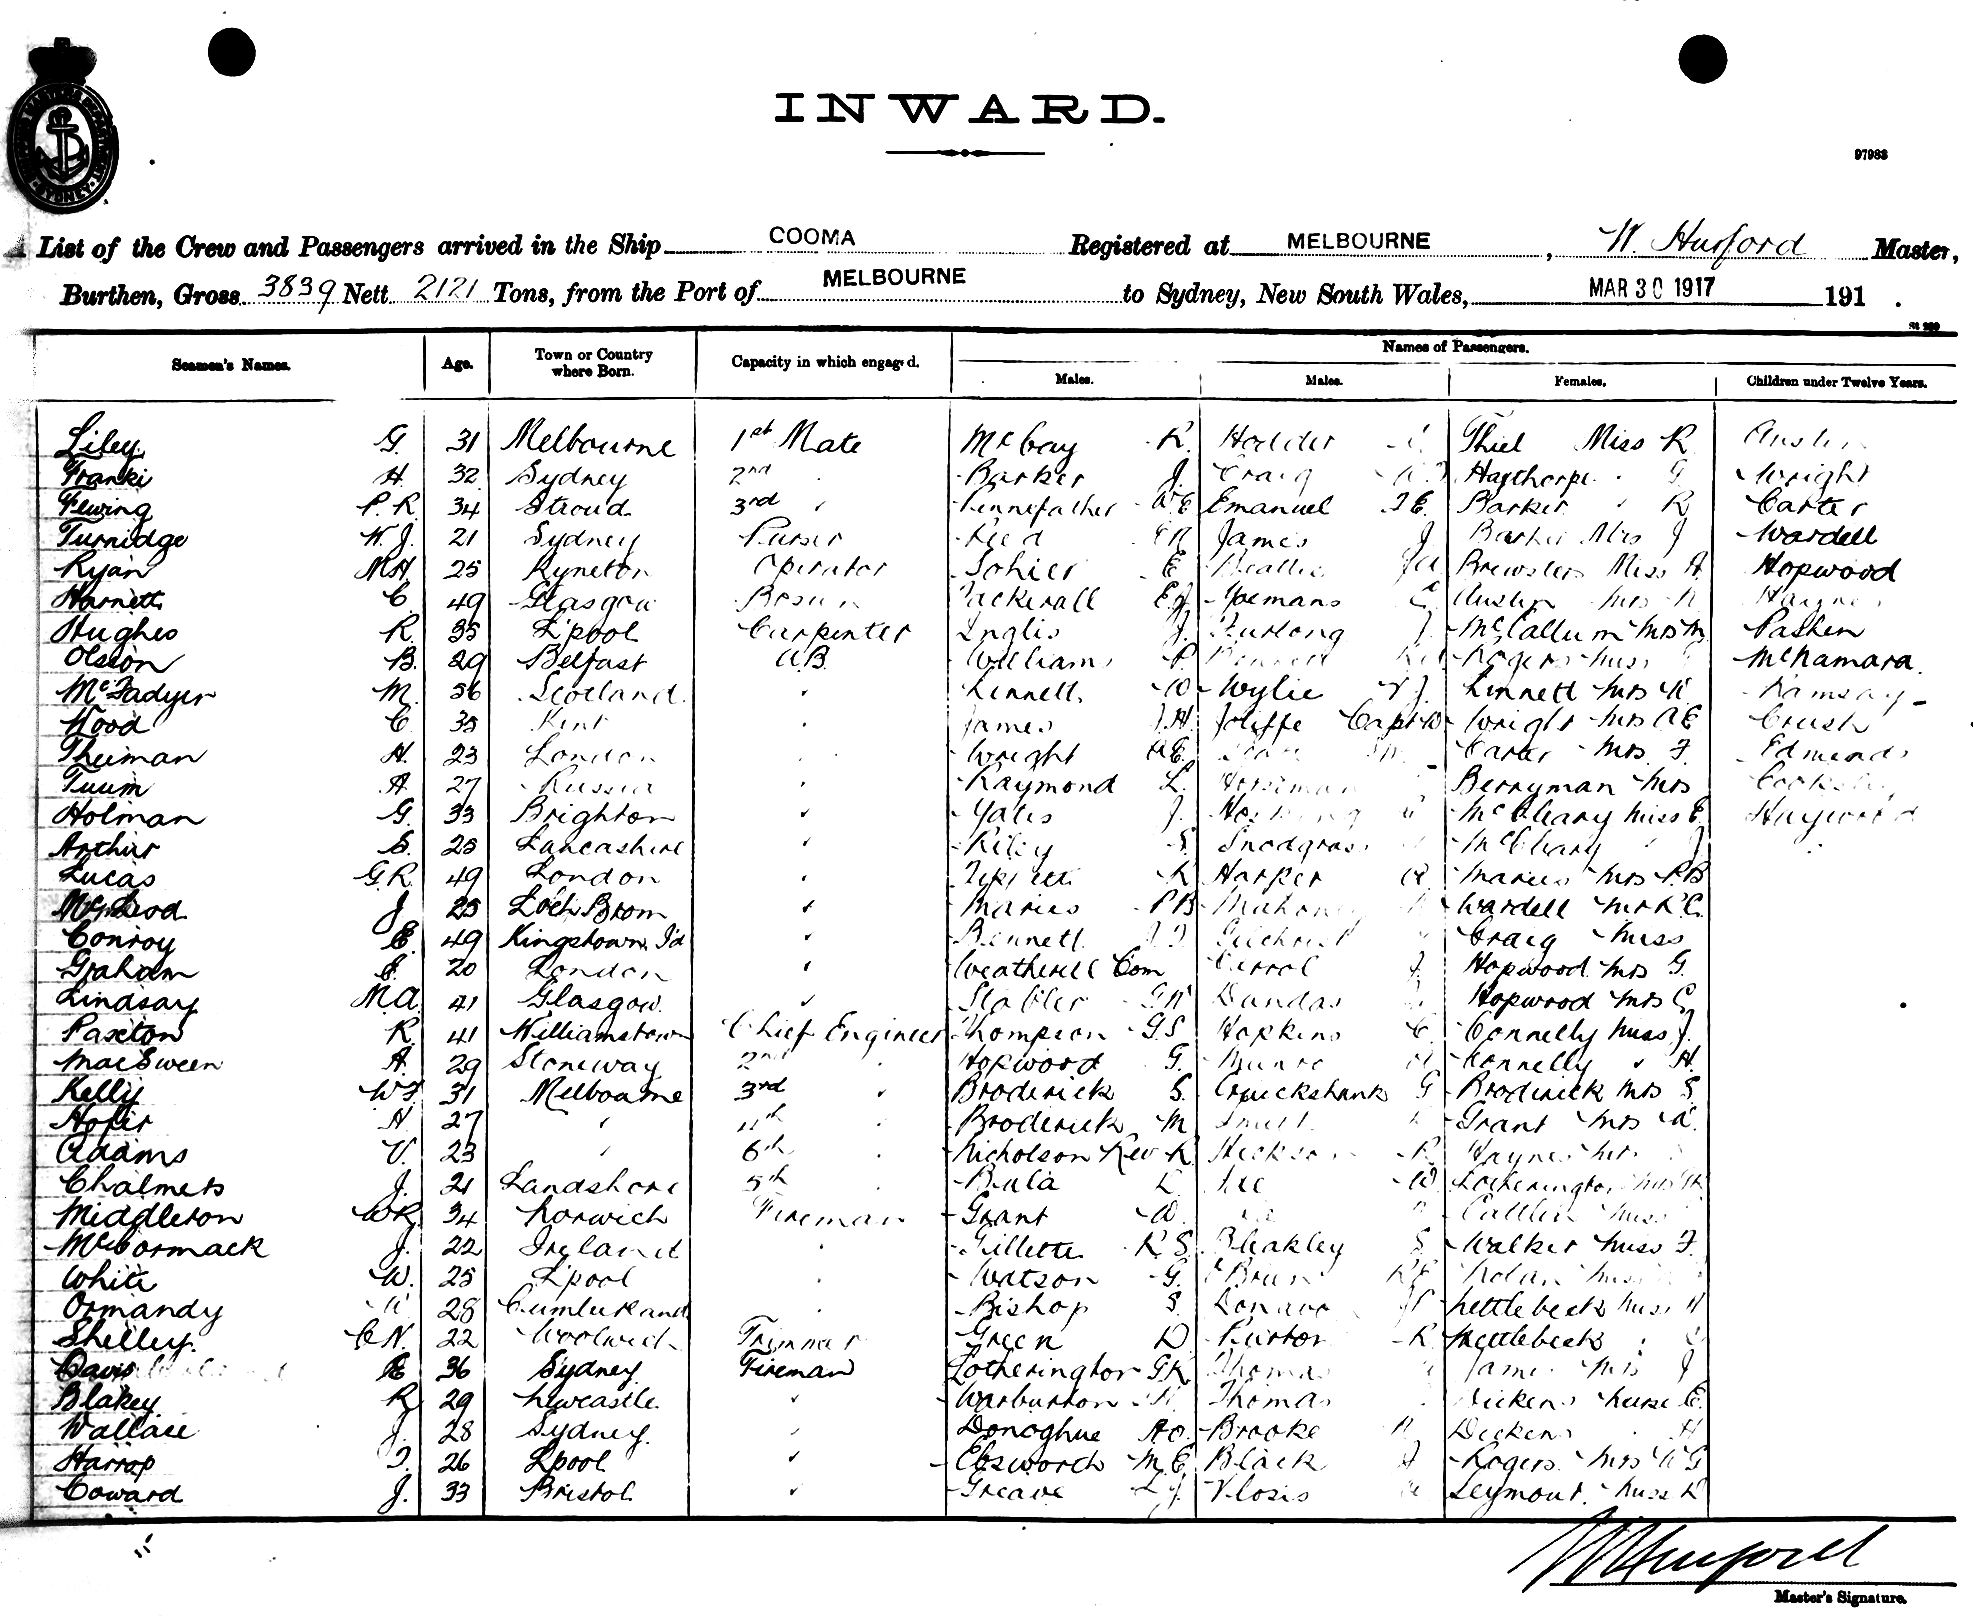 INWARD.
97983
List of the Crew and Passengers arrived in the Ship COOMA Registered at MELBOURNE, W. Hurford Master,
Burthen, Gross 3839 Nett 2121 Tons, from the Port of MELBOURNE to Sydney, New South Wales, MAR 30 1917 191 .
Seamen's Names. Age. Town or Country where Born. Capacity in which engaged. Names of Passengers.
Males. Males. Females. Children under Twelve Years.
Liley G. 31 Melbourne 1st Mate McCay R. Hodder Thiel Miss R Austin
Franki H. 32 Sydney 2nd Barker J. Craig Haythorpe G Wright
Fewing P.R. 34 Stroud 3rd " Pennefather W.E Emanuel Barker " R Carter
Turnidge W.J. 21 Sydney Purser Reed James J Barker Mrs J Wardell
Ryan M.H. 25 Kyneton Operator Sohier E Beattie Brewster Miss A Hopwood
Harnett C. 49 Glasgow Bosun Packerall E.J. Yoemans Austin Mrs Haynes
Hughes R. 35 L'pool Carpenter Inglis J. Furlong J. McCallum Mrs M. Pashen
Olsson B. 29 Belfast A.B. Williams P. Bennett Rogers Miss McNamara.
McFadyer M. 36 Scotland " Linnett W Wylie Linnett Mrs W Ramsay
Wood C. 35 Kent " James J.H. Joliffe Capt W Wright Mrs A.E Crush
Theiman H. 23 London " Wright A.E. Carter Mrs F. Edmends
Tuum A. 27 Russia " Raymond L. Horseman Berryman Mrs
Holman G. 33 Brighton " Yates J. McCleary Miss E. Hayword
Arthur S. 25 Lancashire " Riley S. Snodgrass McCleary " J
Lucas G.R. 49 London " K Harper Maries Mrs P.B
McLeod J. 25 Loch Brom " Maries P.B Mahoney Wardell Mrs R.C.
Conroy E. 49 Kingstown I'd " Bennett Gilchrist Craig Miss
Graham E. 20 London " Weatherill Com Carrol J. Hopwood Mrs G.
Lindsay M.A. 41 Glasgow. " Stabler G.W Dundas Hopwood Mrs C.
Paxton R. 41 Williamstown Chief Engineer Thompson G.S. Hopkins C. Connelly Miss J.
MacSween A. 29 Stoneway 2nd " Hopwood G. Munro Connelly " H.
Kelly W.F. 31 Melbourne 3rd " Broderick S. Cruickshank G Broderick Mrs S.
Hofer H. 27 " 4th " Broderick M Smith Grant Mrs A.
Adams V. 23 " 6th " Nicholson Rev R. Hickson R. Haynes Mrs
Chalmers J. 21 Landshore 5th " Bula L. Lee W. Lotherington Mrs G.K
Middleton W.R. 34 Norwich Fireman Grant W. Catlin Miss
McCormack J. 22 Ireland " Gillette R.S. Bleakley S. Walker Miss F.
White W. 25 L'pool " Watson G. Nolan Miss
Ormandy W 28 Cumberland " Bishop S. Nettlebeck Miss H
Shelley. C.N. 22 Woolwich Trimmer Green D. Burton R Nettlebeck "
Davis E 36 Sydney. Fireman Lotherington G.K. Thomas James Mrs J
Blakey R 29 Newcastle. " Warburton Thomas Dickens Nurse E.
Wallace J. 28 Sydney. " Donoghue Brooke Dickens H
Harrop J. 26 L'pool " Ebsworth M.E. Black Rogers. Mrs W G
Coward J. 33 Bristol " Greave L.J. Vlosis Seymour. Miss
W Hurford
Master's Signature.